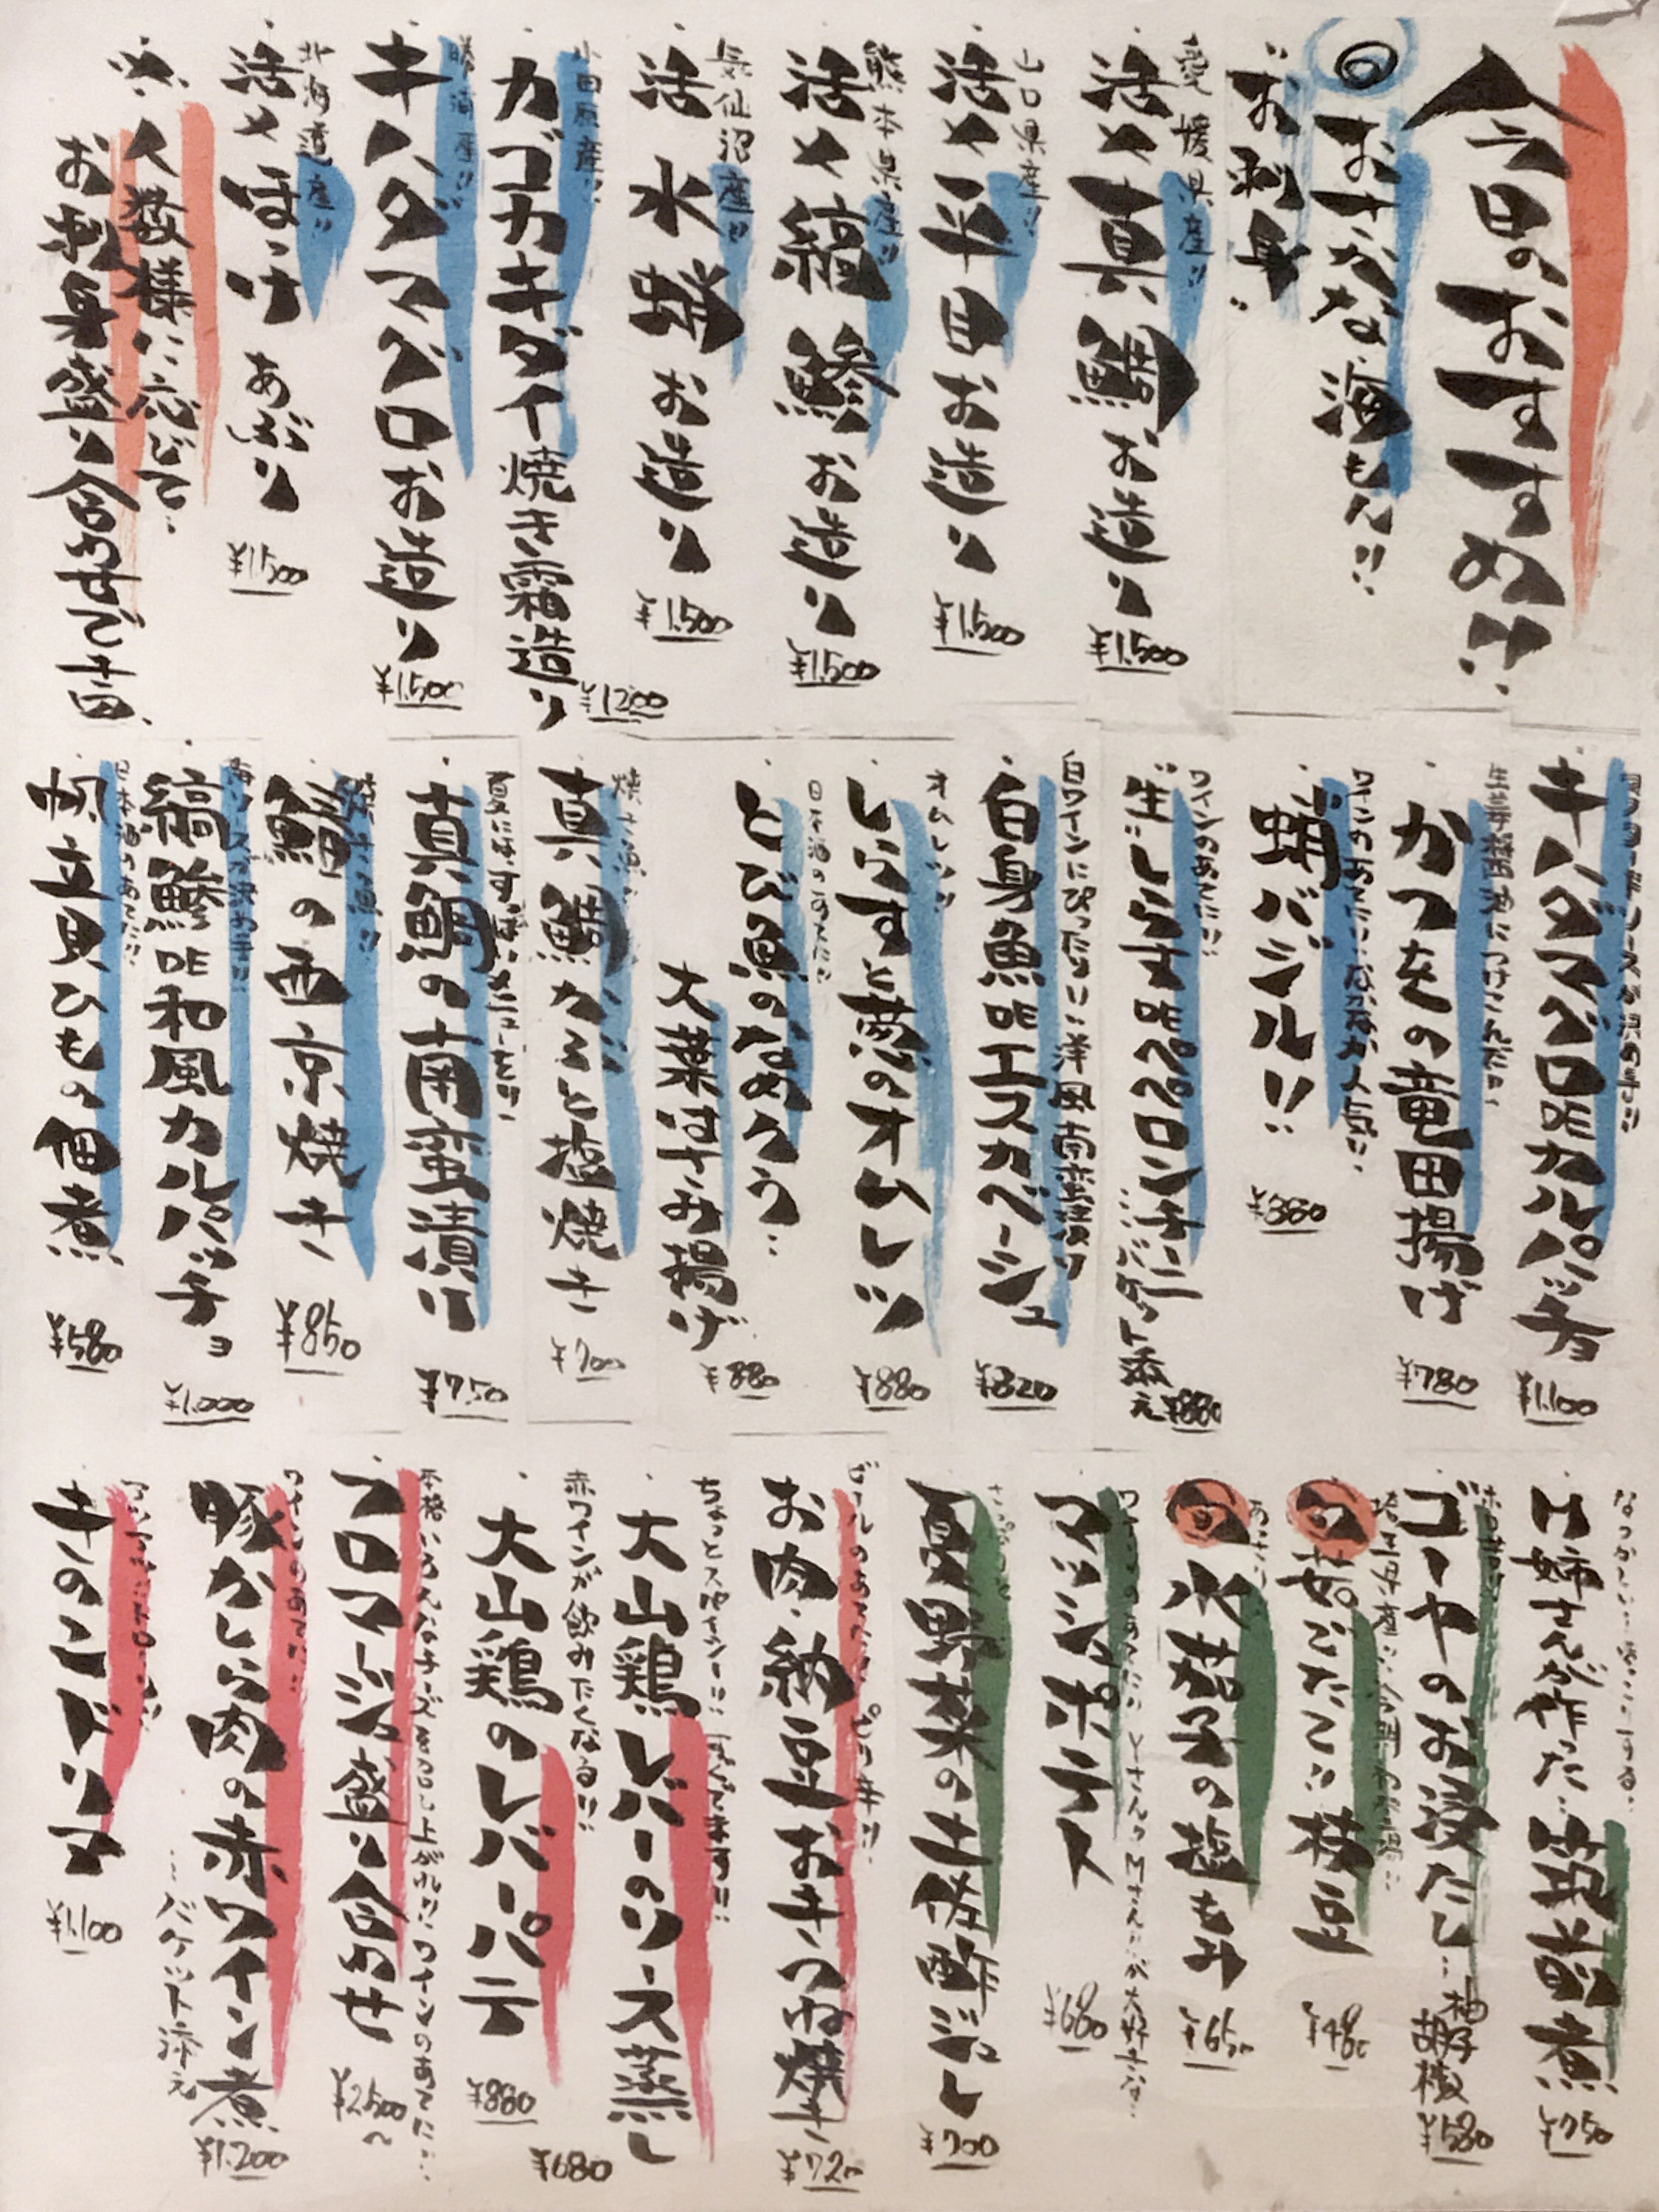 今日のおすすめ!!
◎おさかな・海もん!!
"お刺身"
愛媛県産!!
・活〆真鯛お造り ¥1,500
山口県産!!
・活〆平目お造り ¥1,500
熊本県産!!
・活〆縞鯵お造り ¥1,500
気仙沼産!!
・活水蛸お造り ¥1,500
小田原産!!
・カゴカキダイ焼き霜造り ¥1200
勝浦産!!
・キハダマグロお造り ¥1,500
北海道産!!
・活〆ほっけあぶり ¥1,500
※人数様に応じて…
お刺身盛り合わせできます、
ヨーグルトソースが決め手!!
・キハダマグロDEカルパッチョ ¥1,100
生姜醤油につけこんだ!!
・かつをの竜田揚げ ¥780
ワインのあてに!!なかなか人気!!
・蛸バジル!! ¥880
ワインのあてに!!
"生"しらすDEペペロンチーニ…バケット添え ¥880
白ワインにぴったり!!洋風南蛮漬け
・白身魚DEエスカベーシュ ¥820
オムレツ!!
・しらすと葱のオムレツ ¥880
日本酒のあてに!!
・とび魚のなめろう…
大葉はさみ揚げ ¥880
焼き魚!!
・真鯛かぶと塩焼き ¥700
夏におすすめメニューを!!
・真鯛の南蛮漬け ¥750
焼き魚!!
・鰆の西京焼き ¥850
ソースが決め手!!
・縞鯵DE和風カルパッチョ ¥1,000
日本酒のあてに!!
・帆立貝ひもの佃煮 ¥580
・ゴーヤのお浸だし…柚子胡椒 ¥580
茹でたて!!枝豆 ¥480
水茄子の塩もみ ¥650
・マッシュポテト ¥680
・夏野菜の土佐酢浸し ¥700
・お肉・納豆おきつね焼き ¥720
・大山鶏レバーのソース蒸し ¥680
赤ワインが飲みたくなる!!
・大山鶏のレバーパテ ¥880
・フロマージュ盛り合わせ ¥2,500〜
ワインのあてに!!
・豚かしら肉の赤ワイン煮 ¥1,200
…バケット添え
・チキンドリア ¥1,100